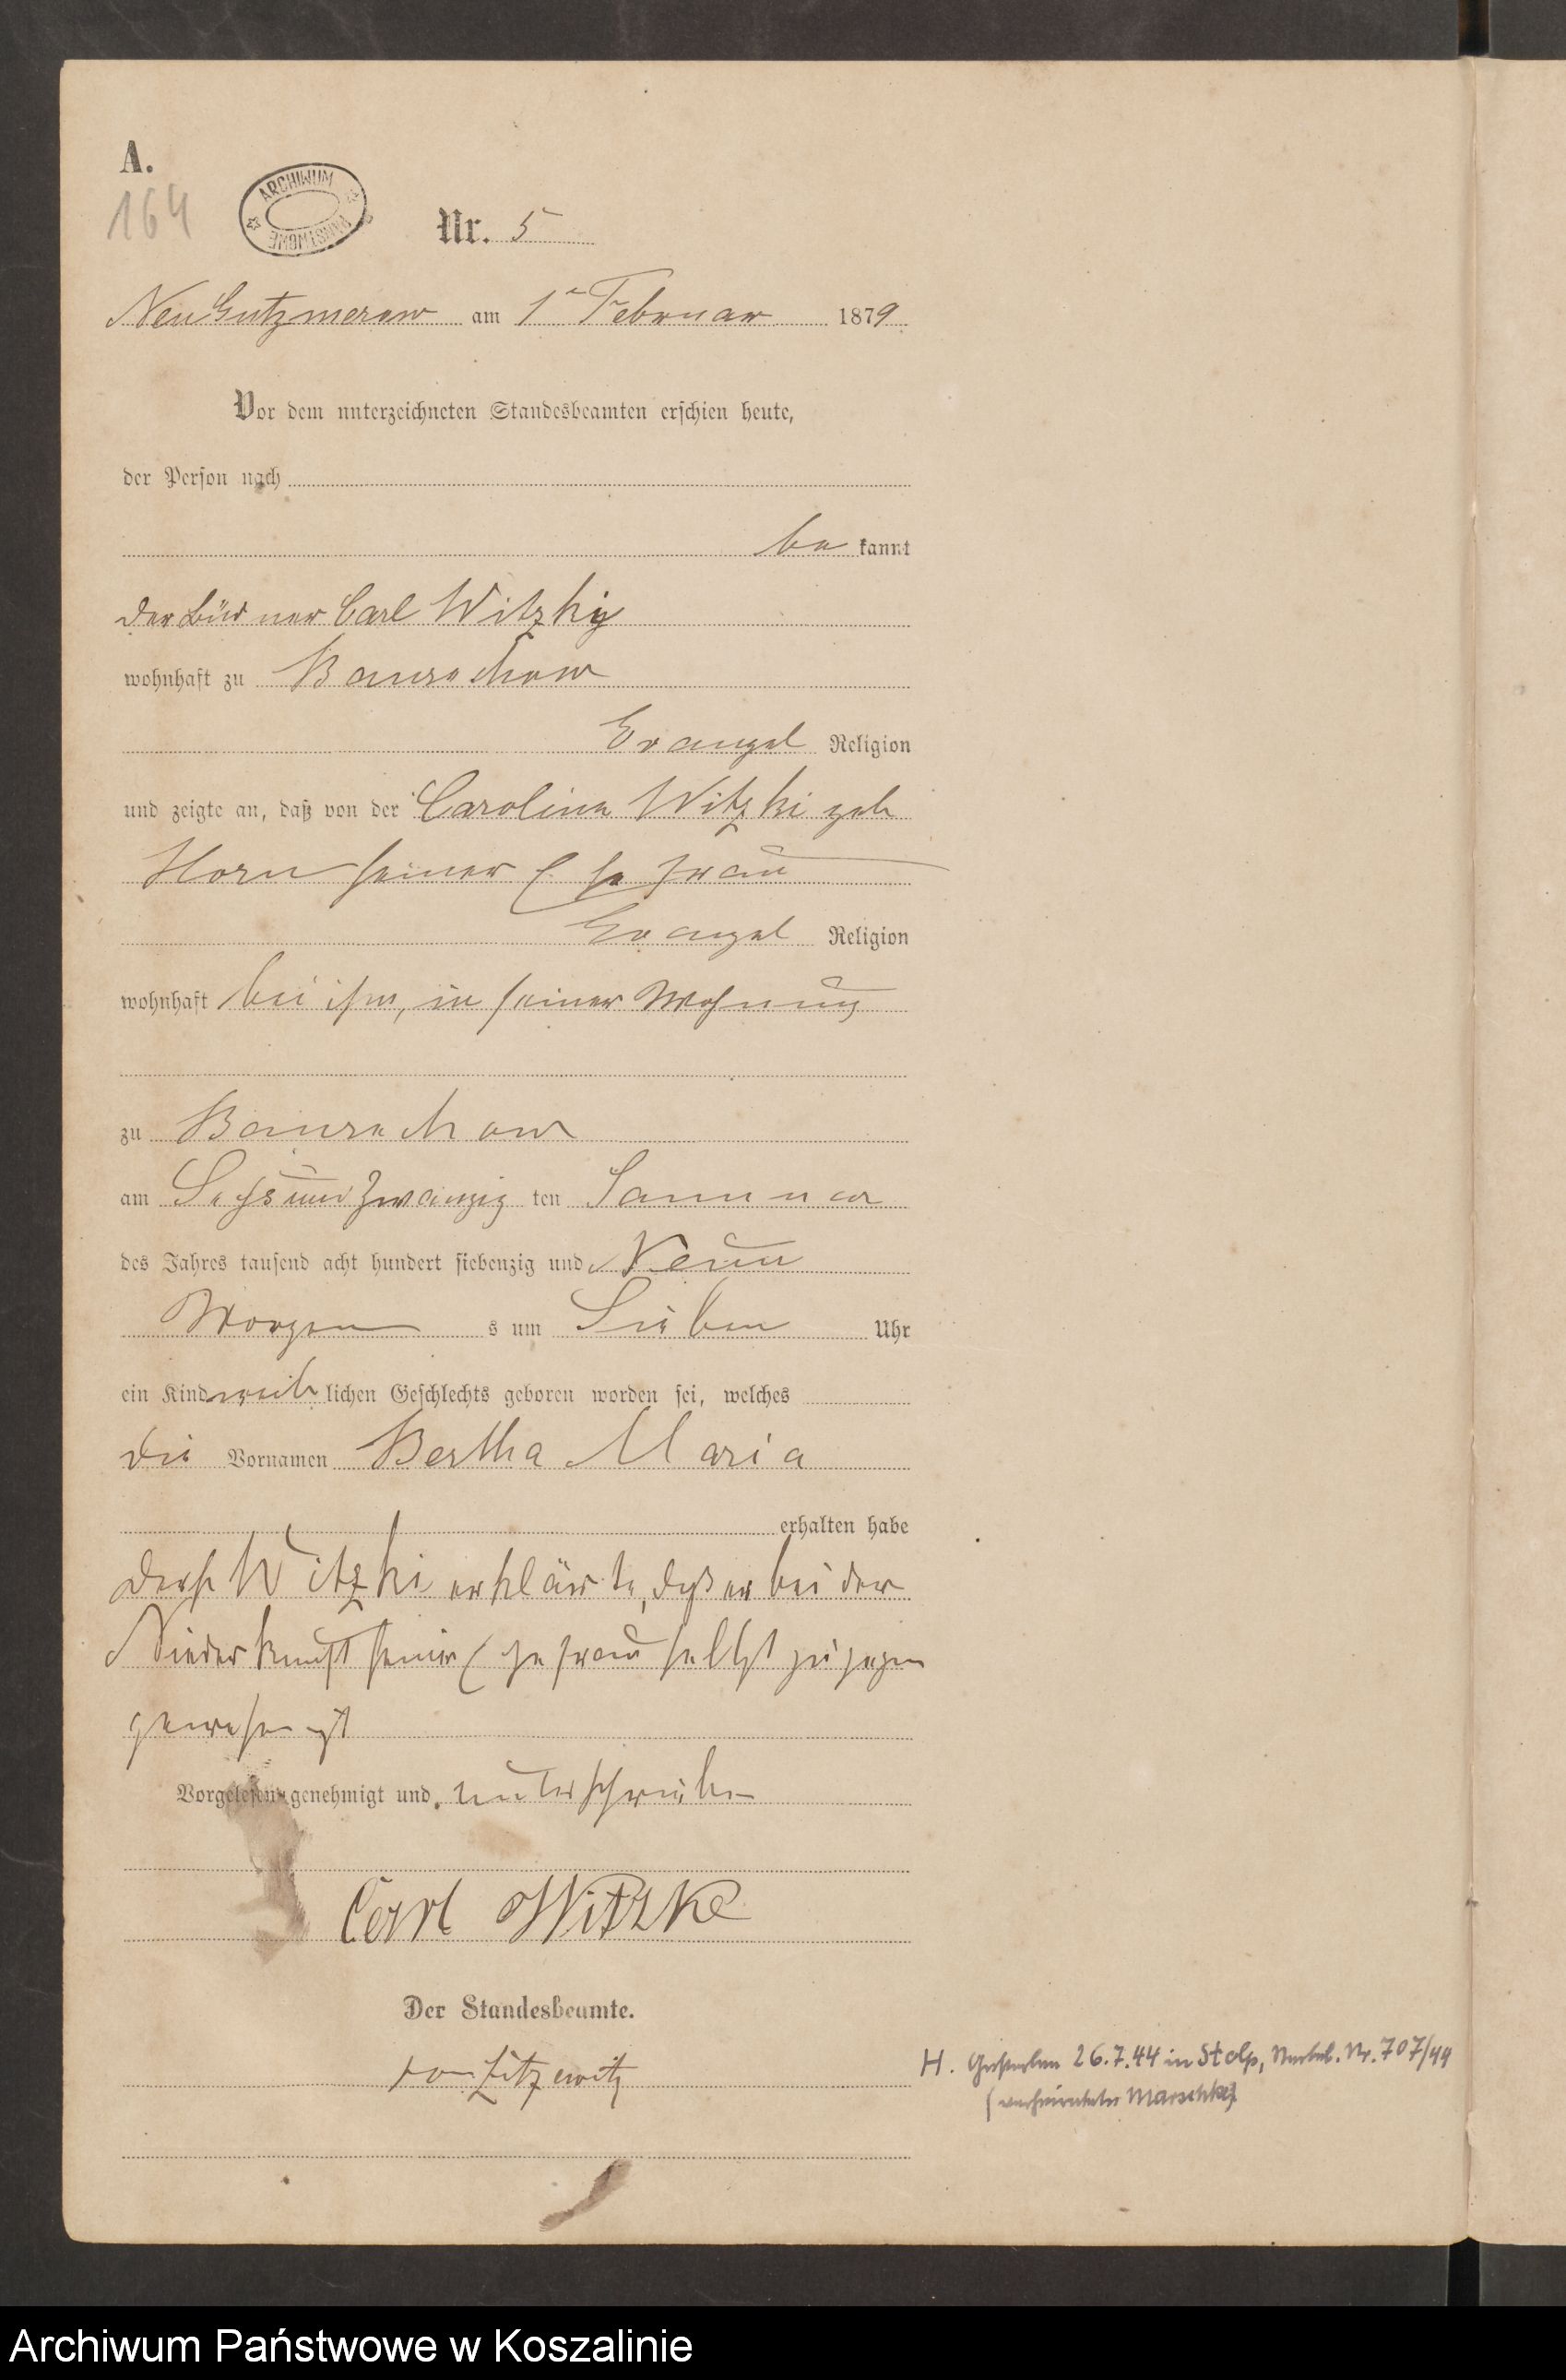 A.
164
ARCHIWUM
PAŃSTWOWE
Nr. 5
Neu Gutzmerow am 1ten Februar 1879
Vor dem unterzeichneten Standesbeamten erschien heute,
der Person nach
be kannt
der Büdner Carl Witzky
wohnhaft zu
Evangel Religion
und zeigte an, daß von der Caroline Witzki geb
Horn seiner Ehefrau
Evangel Religion
wohnhaft bei ihm, in seiner Wohnung
zu
am Sechsundzwanzig ten Januar
des Jahres tausend acht hundert siebenzig und Neun
Morgen s um Sieben Uhr
ein Kind weib lichen Geschlechts geboren worden sei, welches
die Vornamen Bertha Maria
erhalten habe
Witzki erklärte, daß er bei der
Niederkunft seiner Ehefrau selbst zugegen
gewesen ist
Vorgelesen, genehmigt und unterschrieben
Carl Witzke
Der Standesbeamte.
von Zitzewitz
H. Gestorben 26.7.44 in Stolp, Nr. 707/44
(verheiratete Marschke)
Archiwum Państwowe w Koszalinie